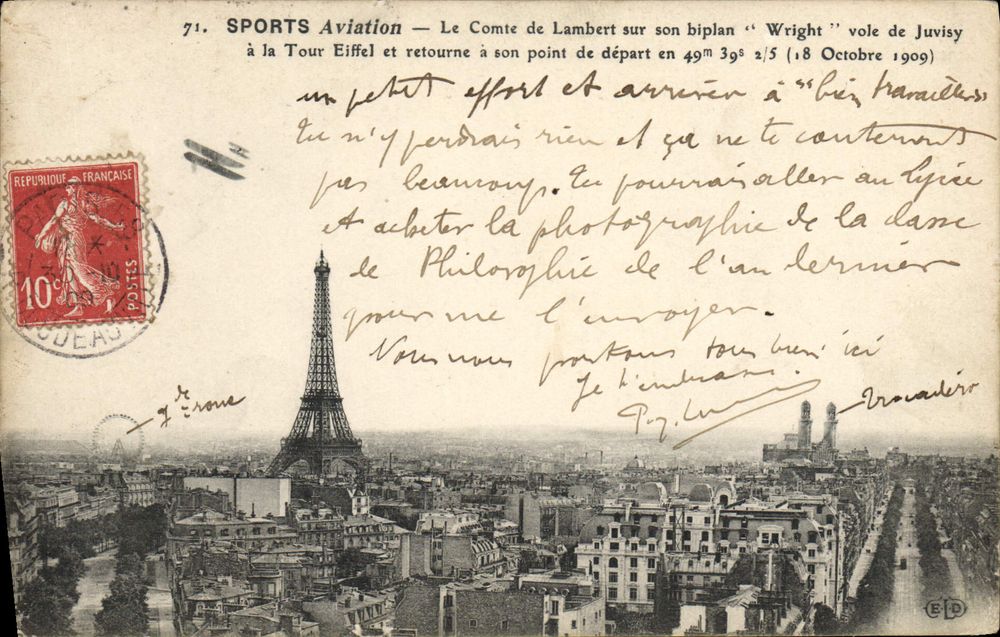 71. SPORTS Aviation — Le Comte de Lambert sur son biplan “ Wright ” vole de Juvisy
à la Tour Eiffel et retourne à son point de départ en 49m 39s 2/5 (18 Octobre 1909)
un petit effort et arriver à "bien travailler"
Tu n'y perdrais rien et ça ne te
pas beaucoup. Tu pourrais aller au lycée
et acheter la photographie de la classe
de Philosophie de l'an dernier
pour me l'envoyer.
Nous nous portons tous bien ici
Je t'embrasse.
REPUBLIQUE FRANÇAISE
10c
POSTES
gde roue
Trocadéro
ELD